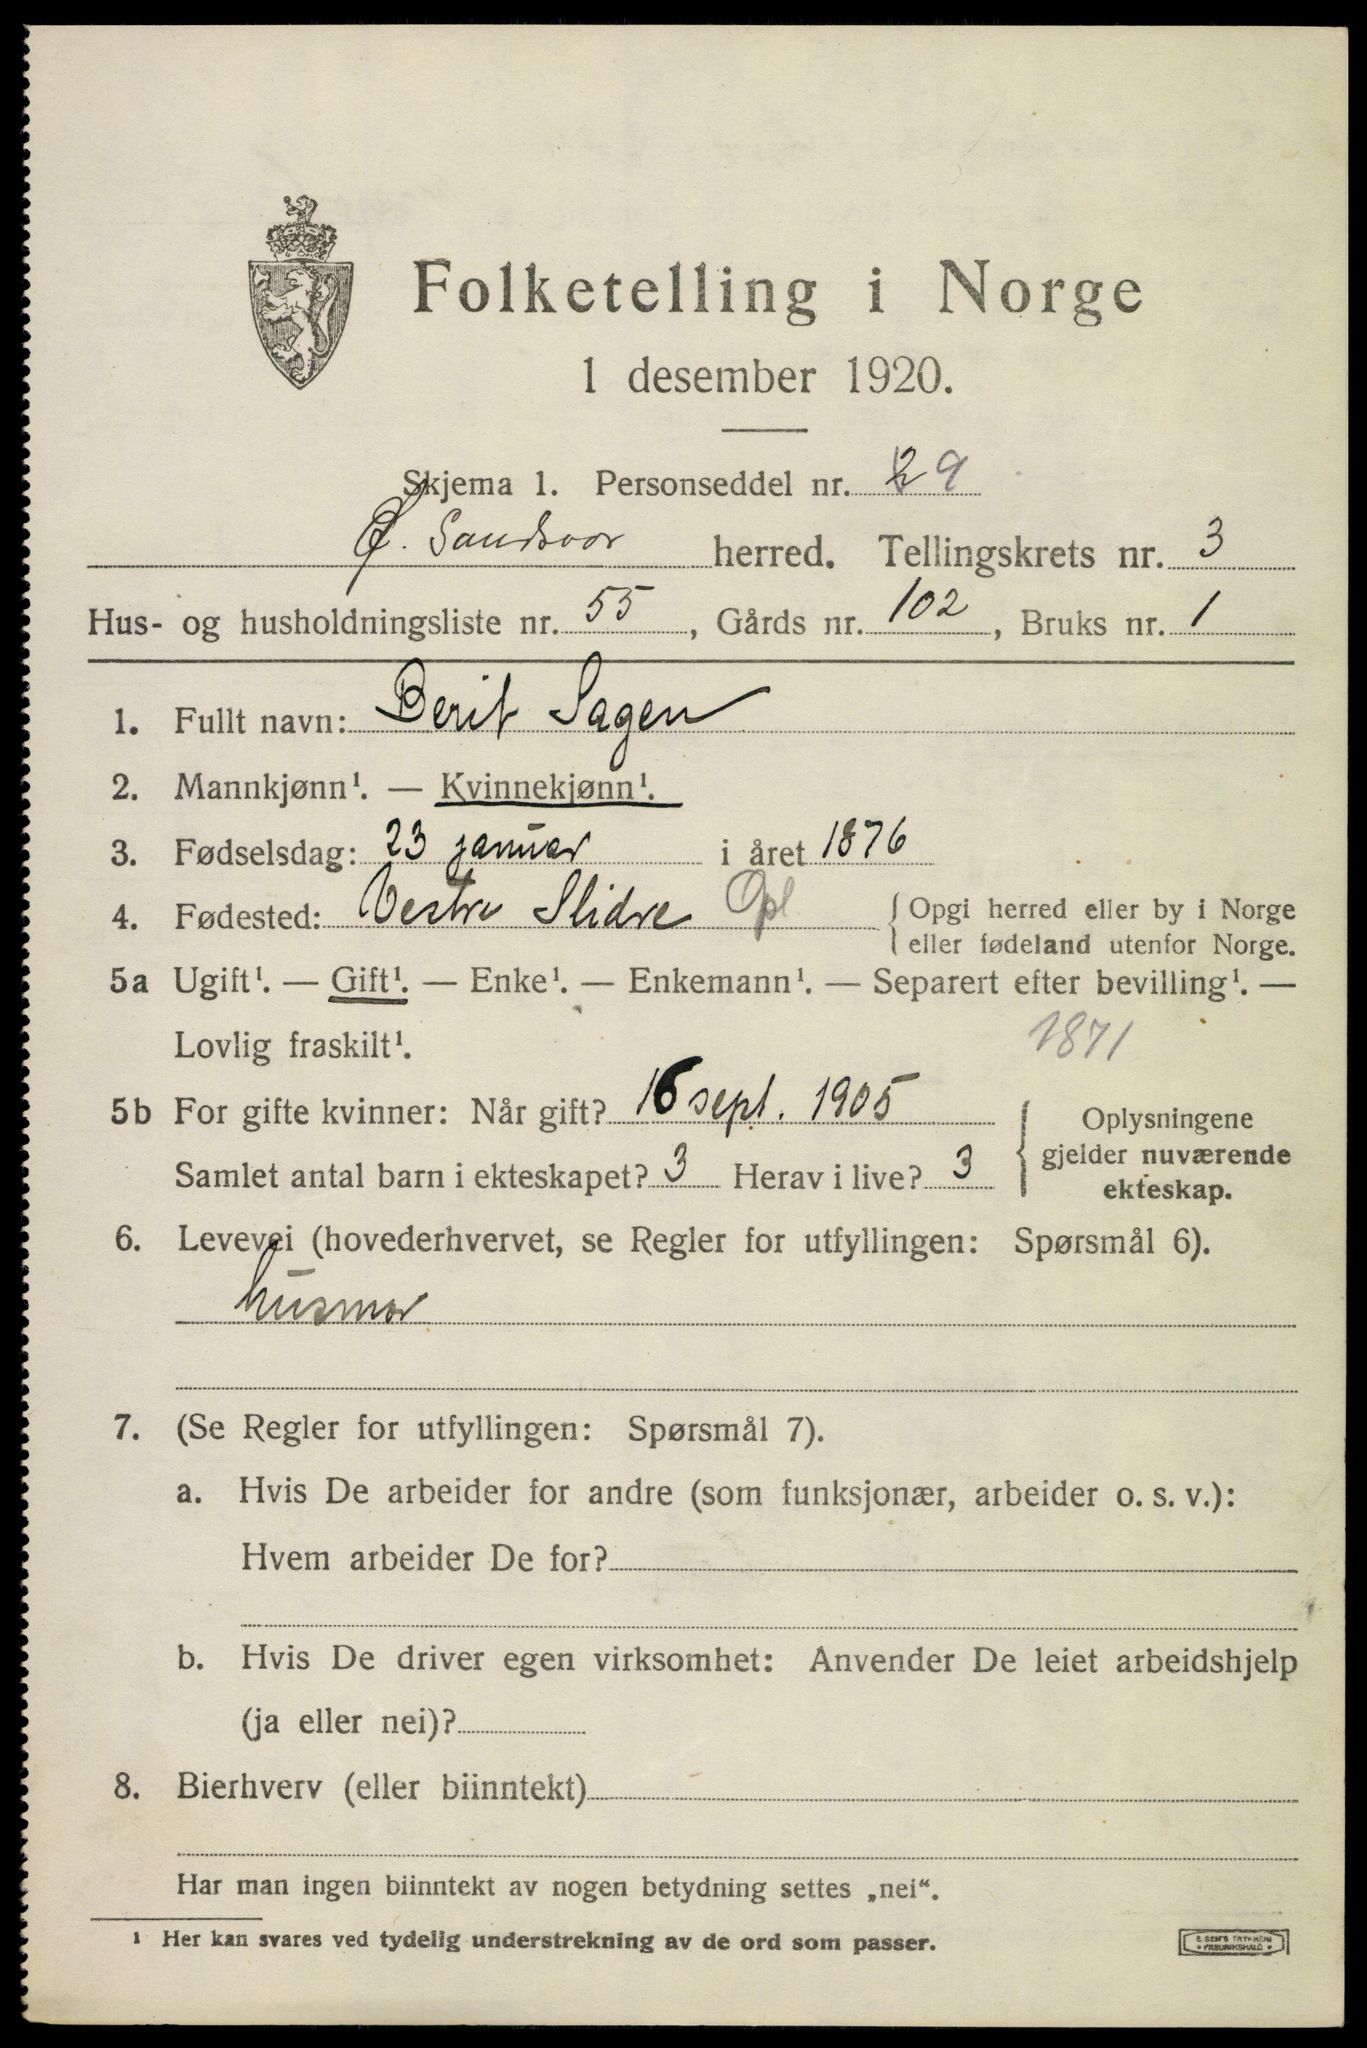 Folketelling i Norge
1 desember 1920.
Skjema 1. Personseddel nr. 29
Ø. Sandsvær herred. Tellingskrets nr. 3
Hus- og husholdningsliste nr. 55, Gårds nr. 102, Bruks nr. 1
1. Fullt navn: Berit Sagen
2. Mannkjønn¹. — Kvinnekjønn¹.
3. Fødselsdag: 23 januar i året 1876
4. Fødested: Vestre Slidre Opl { Opgi herred eller by i Norge
eller fødeland utenfor Norge.
5a Ugift¹. — Gift¹. — Enke¹. — Enkemann¹. — Separert efter bevilling¹. —
Lovlig fraskilt¹. 1871
5b For gifte kvinner: Når gift? 16 sept. 1905
Samlet antal barn i ekteskapet? 3 Herav i live? 3
{ Oplysningene
gjelder nuværende
ekteskap.
6. Levevei (hovederhvervet, se Regler for utfyllingen: Spørsmål 6).
husmor
7. (Se Regler for utfyllingen: Spørsmål 7).
a. Hvis De arbeider for andre (som funksjonær, arbeider o. s. v.):
Hvem arbeider De for?
b. Hvis De driver egen virksomhet: Anvender De leiet arbeidshjelp
(ja eller nei)?
8. Bierhverv (eller biinntekt)
Har man ingen biinntekt av nogen betydning settes „nei“.
¹ Her kan svares ved tydelig understrekning av de ord som passer.
E. SEM'S TRYKKERI
* FREDRIKSHALD *